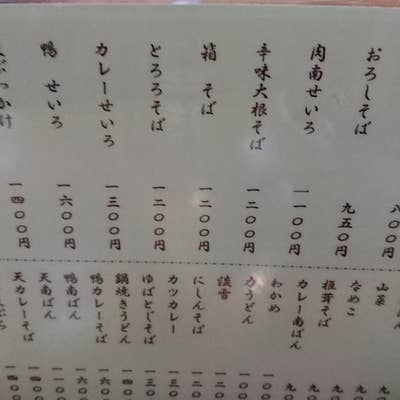 八〇〇円
おろしそば 九五〇円
肉南せいろ 一一〇〇円
辛味大根そば 一二〇〇円
箱 そば 一二〇〇円
とろろそば 一二〇〇円
カレーせいろ 一三〇〇円
鴨 せいろ 一六〇〇円
ぶっかけ 一四〇〇円
山菜
なめこ
椎茸そば
カレー南ばん
わかめ
力うどん
淡雪
にしんそば
カツカレー
ゆばとじそば
鍋焼きうどん
鴨カレーそば
鴨南ばん
天南ばん
天カレーそば